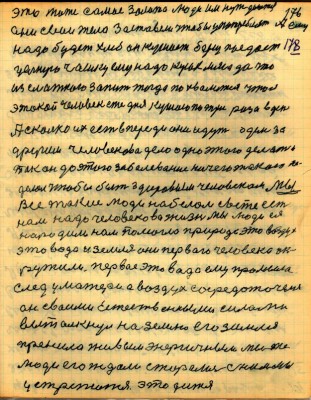 это тоже самое золото люди им нуждаются 176
они своих тело заставили чтобы употреблять
надо будет хлеб он кушает борщ поедает 178
целную чашку ему надо крик мяса да что
из сладкого запит тогда похвалится что я
этакой человек сте дня кушаю по три раза в день
А сколько их есть впереди они идут один за
другим человеково дело одно этого делать
пока до этого заболевание ничего такого не
делал чтобы быть здоровым человеком. Мы
Все такие люди на белом свете есть
нам надо человекова жизнь мы люди ея
народим нам помогло природа это воздух
это вода и земля они первого человека ок
ружили, первое это вода ему промыла
след у матери а воздух сосредоточено
он своими естественными силами
вытолкнул на землю его земля
приняла живым энергичным таже
люди его ждали старались с ними
устретится. это дитя